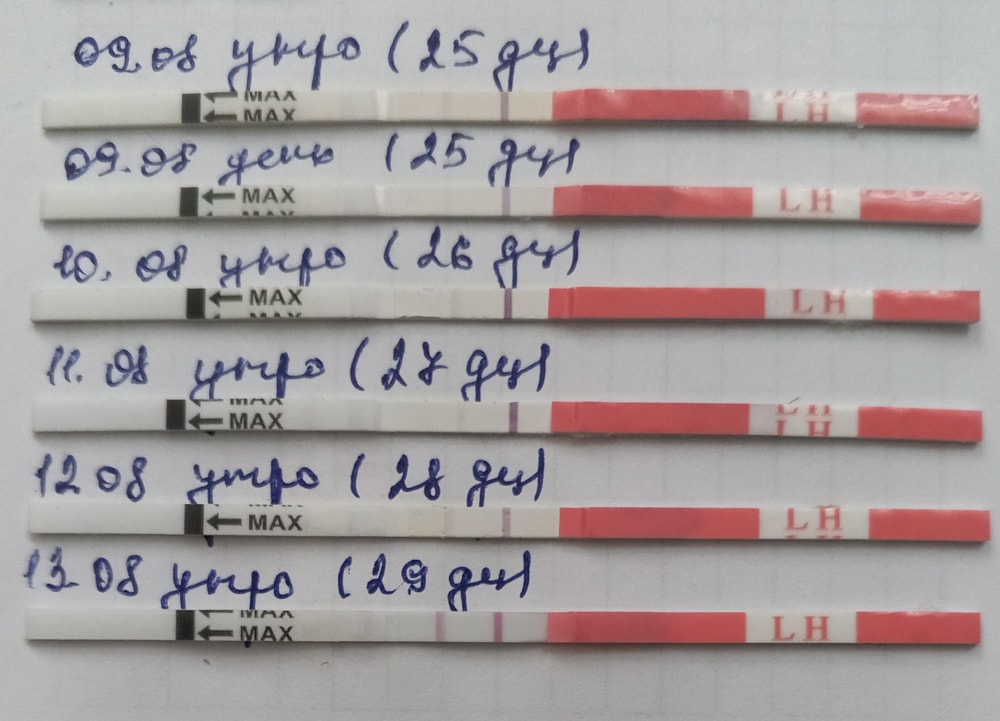 09.08 утро (25 дц)
MAX
MAX LH
09.08 день (25 дц)
MAX LH
10.08 утро (26 дц)
MAX LH
11.08 утро (27 дц)
MAX LH
MAX LH
12 08 утро (28 дц)
MAX LH
13 08 утро (29 дц)
MAX
MAX LH